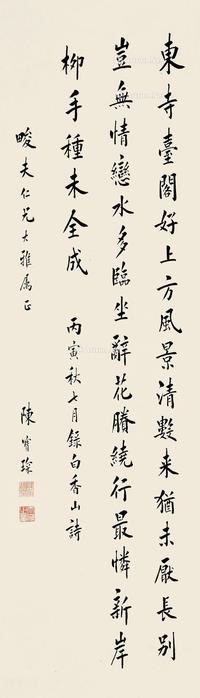 東寺臺閣好上方風景清數来猶未厭長別
豈無情戀水多臨坐辭花賸繞行最憐新岸
柳手種未全成
丙寅秋七月錄白香山詩
畯夫仁兄大雅属正
陳寶琛